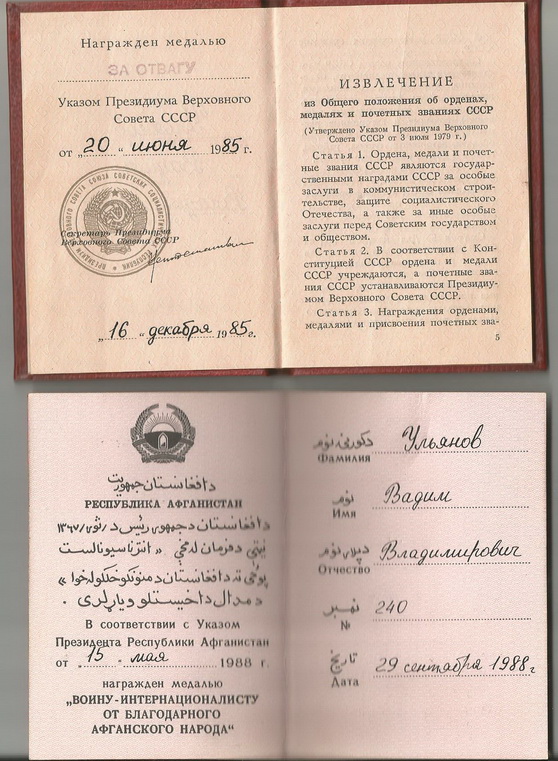 Награжден медалью
ЗА ОТВАГУ
Указом Президиума Верховного
Совета СССР
от „20“ июня 1985 г.
Секретарь Президиума
Верховного Совета СССР
„16“ декабря 1985 г.
ИЗВЛЕЧЕНИЕ
из Общего положения об орденах,
медалях и почетных званиях СССР
(Утверждено Указом Президиума Верховного
Совета СССР от 3 июля 1979 г.)
Статья 1. Ордена, медали и почет-
ные звания СССР являются государ-
ственными наградами СССР за особые
заслуги в коммунистическом строи-
тельстве, защите социалистического
Отечества, а также за иные особые
заслуги перед Советским государством
и обществом.
Статья 2. В соответствии с Кон-
ституцией СССР ордена и медали
СССР учреждаются, а почетные зва-
ния СССР устанавливаются Президиу-
мом Верховного Совета СССР.
Статья 3. Награждения орденами,
медалями и присвоения почетных зва-
5
دافغانستان جمهوریت
РЕСПУБЛИКА АФГАНИСТАН
В соответствии с Указом
Президента Республики Афганистан
от 15 мая 1988 г.
награжден медалью
„ВОИНУ-ИНТЕРНАЦИОНАЛИСТУ
ОТ БЛАГОДАРНОГО
АФГАНСКОГО НАРОДА“
دکورنۍ نوم
Фамилия Ульянов
نوم
Имя Вадим
دپلار نوم
Отчество Владимирович
نمبر
№ 240
تاریخ
Дата 29 сентября 1988 г